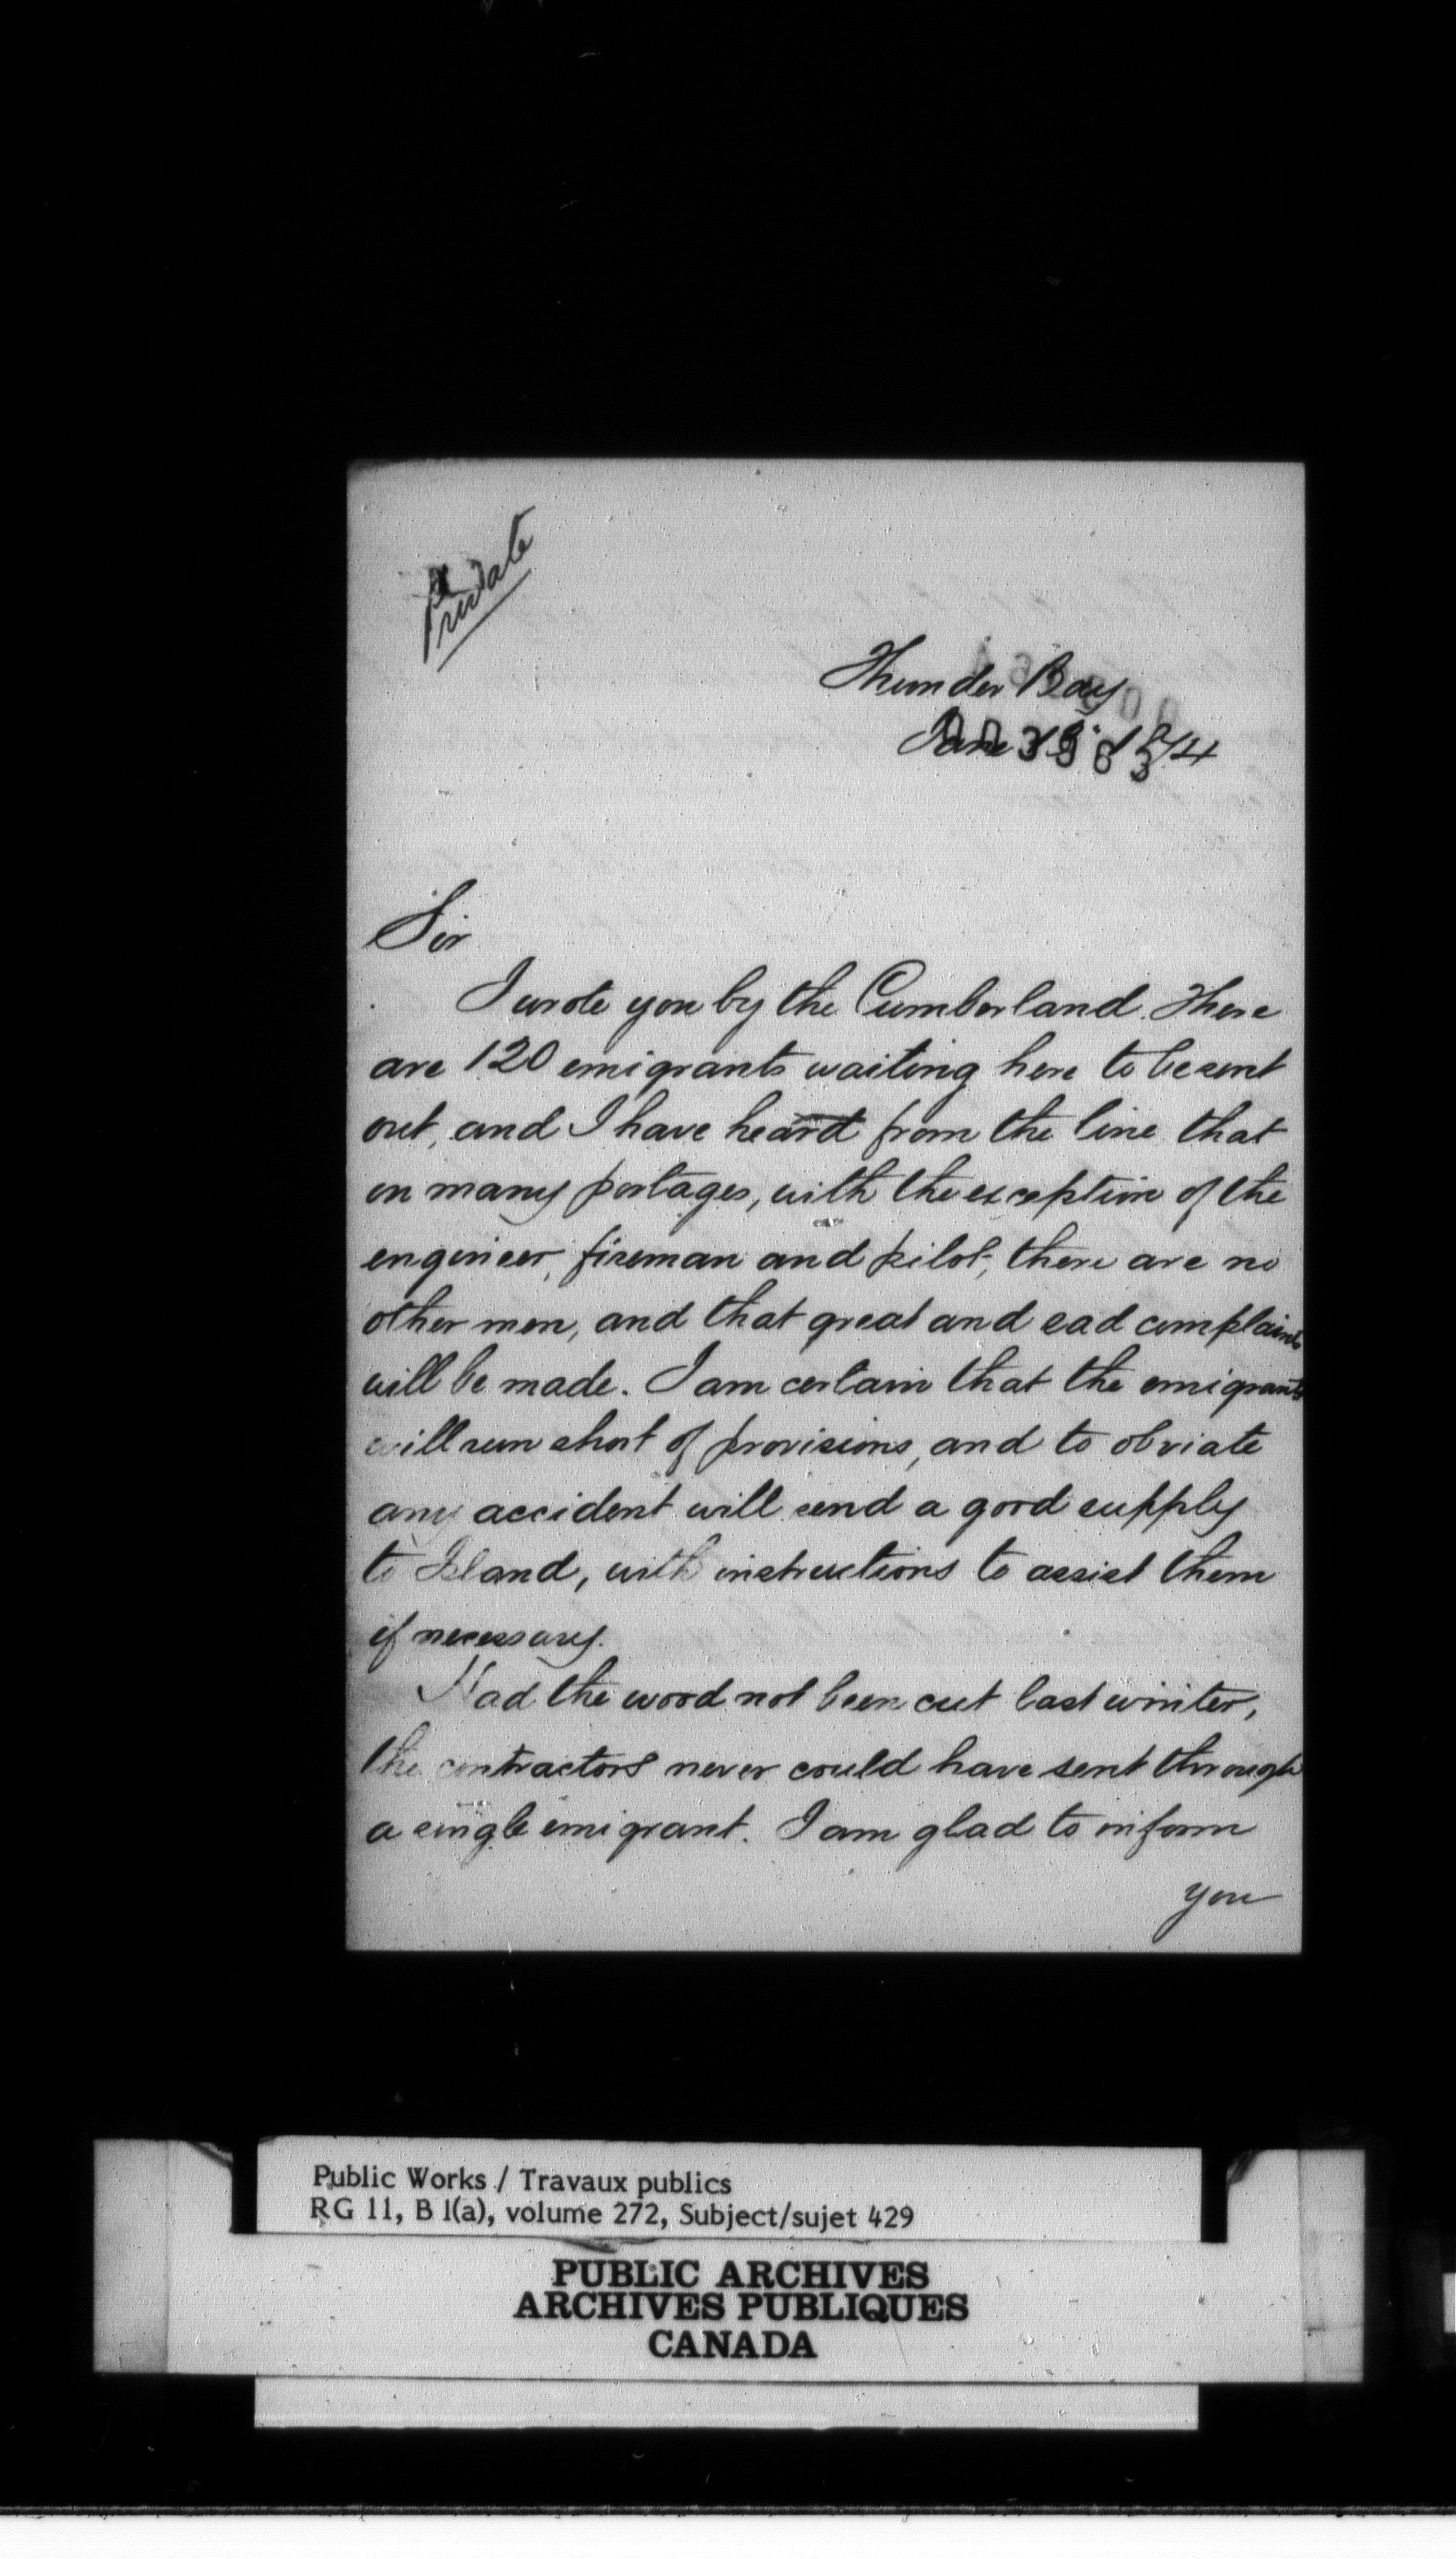 Private
Thunder Bay
June 1874
003963
Sir
I wrote you by the Cumberland. There
are 120 emigrants waiting here to be sent
out, and I have heard from the line that
on many portages, with the exception of the
engineer, fireman and pilot, there are no
other men, and that great and sad complaints
will be made. I am certain that the emigrants
will run short of provisions, and to obviate
any accident will send a good supply
to Island, with instructions to assist them
if necessary.
Had the wood not been cut last winter,
the contractors never could have sent through
a single emigrant. I am glad to inform
you
Public Works / Travaux publics
RG 11, B 1(a), volume 272, Subject/sujet 429
PUBLIC ARCHIVES
ARCHIVES PUBLIQUES
CANADA